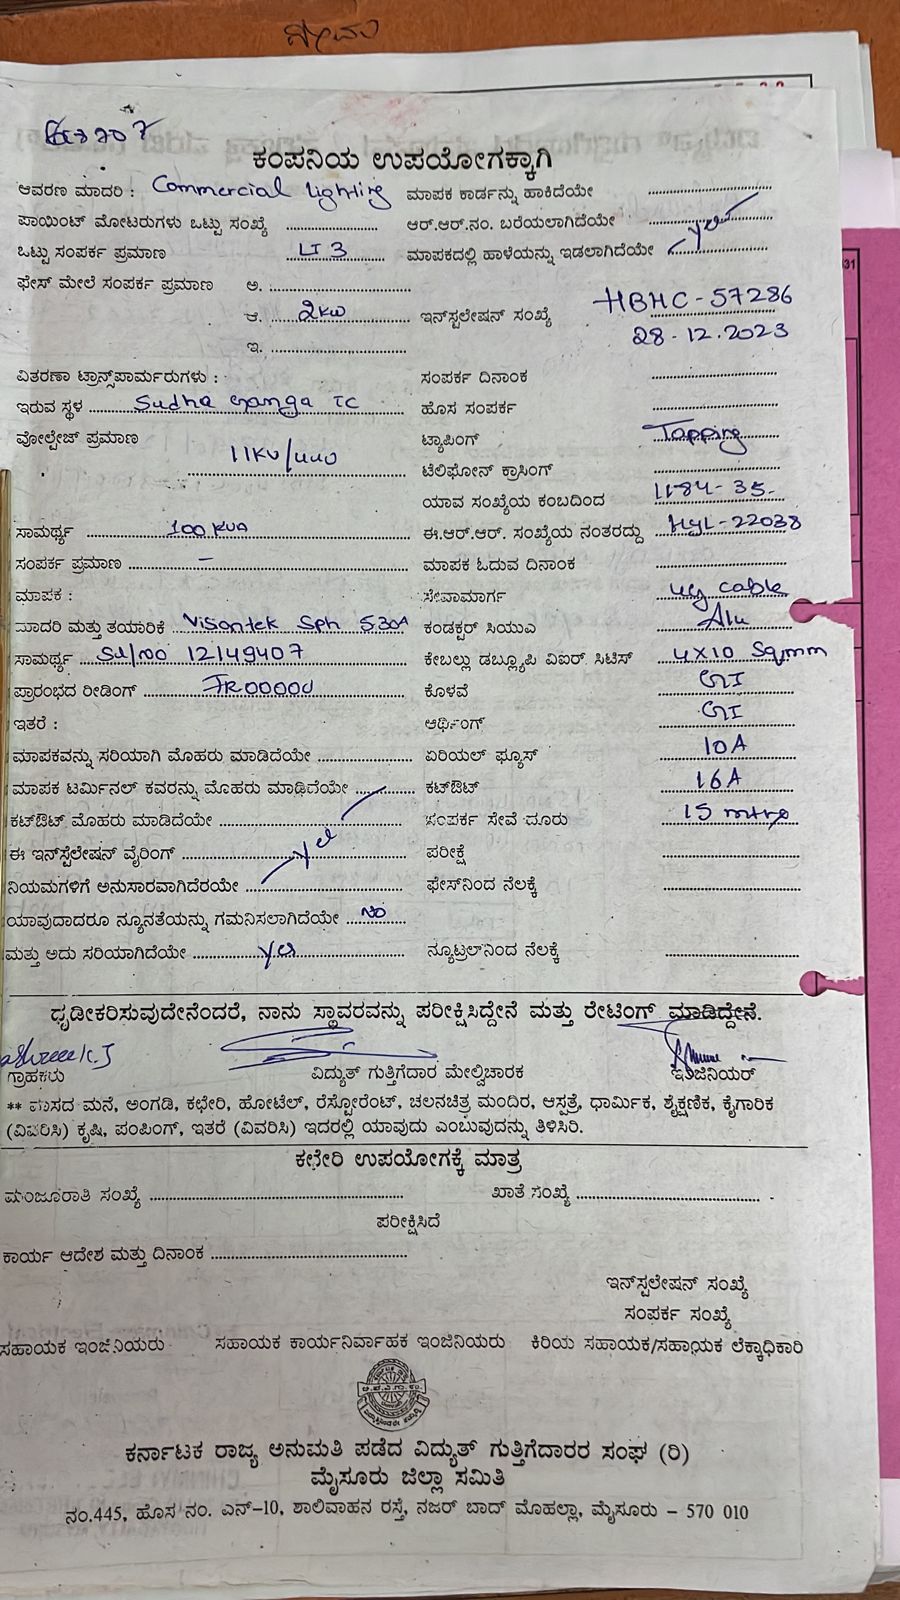 ಕಂಪನಿಯ ಉಪಯೋಗಕ್ಕಾಗಿ
ಆವರಣ ಮಾದರಿ : Commercial lighting ಮಾಪಕ ಕಾರ್ಡನ್ನು ಹಾಕಿದೆಯೇ
ಪಾಯಿಂಟ್ ಮೋಟರುಗಳು ಒಟ್ಟು ಸಂಖ್ಯೆ ಆರ್.ಆರ್.ನಂ. ಬರೆಯಲಾಗಿದೆಯೇ
ಒಟ್ಟು ಸಂಪರ್ಕ ಪ್ರಮಾಣ LT 3 ಮಾಪಕದಲ್ಲಿ ಹಾಳೆಯನ್ನು ಇಡಲಾಗಿದೆಯೇ yes
ಫೇಸ್ ಮೇಲೆ ಸಂಪರ್ಕ ಪ್ರಮಾಣ ಅ.
ಆ. 2KW ಇನ್‌ಸ್ಟಲೇಷನ್ ಸಂಖ್ಯೆ HBHC-57286
28-12-2023
ಇ.
ವಿತರಣಾ ಟ್ರಾನ್ಸ್‌ಪಾರ್ಮರುಗಳು : ಸಂಪರ್ಕ ದಿನಾಂಕ
ಇರುವ ಸ್ಥಳ Sudha Ganga TC ಹೊಸ ಸಂಪರ್ಕ
ವೋಲ್ಟೇಜ್ ಪ್ರಮಾಣ 11KV/440 ಟ್ಯಾಪಿಂಗ್ Tapping
ಟೆಲಿಫೋನ್ ಕ್ರಾಸಿಂಗ್
ಯಾವ ಸಂಖ್ಯೆಯ ಕಂಬದಿಂದ 1184-35
ಸಾಮರ್ಥ್ಯ 100 KVA ಈ.ಆರ್.ಆರ್. ಸಂಖ್ಯೆಯ ನಂತರದ್ದು HYL-22038
ಸಂಪರ್ಕ ಪ್ರಮಾಣ - ಮಾಪಕ ಓದುವ ದಿನಾಂಕ
ಮಾಪಕ : ಸೇವಾಮಾರ್ಗ ug cable
ಮಾದರಿ ಮತ್ತು ತಯಾರಿಕೆ Visontek Sph 5.30A ಕಂಡಕ್ಟರ್ ಸಿಯುವಿ Alu
ಸಾಮರ್ಥ್ಯ Sl/no 12149407 ಕೇಬಲ್ಲು ಡಬ್ಲ್ಯೂಪಿ ವಿಐರ್ ಸಿಟಿಸ್ 4X10 Sqmm
ಪ್ರಾರಂಭದ ರೀಡಿಂಗ್ ಕೊಳವೆ GI
ಇತರೆ : ಆರ್ಥಿಂಗ್ GI
ಮಾಪಕವನ್ನು ಸರಿಯಾಗಿ ಮೊಹರು ಮಾಡಿದೆಯೇ ಏರಿಯಲ್ ಫ್ಯೂಸ್ 10A
ಮಾಪಕ ಟರ್ಮಿನಲ್ ಕವರನ್ನು ಮೊಹರು ಮಾಡಿದೆಯೇ ಕಟ್‌ಔಟ್ 16A
ಕಟ್‌ಔಟ್ ಮೊಹರು ಮಾಡಿದೆಯೇ ಸಂಪರ್ಕ ಸೇವೆ ದೂರು 15 mtrs
ಈ ಇನ್‌ಸ್ಟೆಲೇಷನ್ ವೈರಿಂಗ್ yes ಪರೀಕ್ಷೆ
ನಿಯಮಗಳಿಗೆ ಅನುಸಾರವಾಗಿದೆರಯೇ ಫೇಸ್‌ನಿಂದ ನೆಲಕ್ಕೆ
ಯಾವುದಾದರೂ ನ್ಯೂನತೆಯನ್ನು ಗಮನಿಸಲಾಗಿದೆಯೇ NO
ಮತ್ತು ಅದು ಸರಿಯಾಗಿದೆಯೇ yes ನ್ಯೂಟ್ರಲ್‌ನಿಂದ ನೆಲಕ್ಕೆ
ಧೃಡೀಕರಿಸುವುದೇನೆಂದರೆ, ನಾನು ಸ್ಥಾವರವನ್ನು ಪರೀಕ್ಷಿಸಿದ್ದೇನೆ ಮತ್ತು ರೇಟಿಂಗ್ ಮಾಡಿದ್ದೇನೆ.
ಗ್ರಾಹಕರು ವಿದ್ಯುತ್ ಗುತ್ತಿಗೆದಾರ ಮೇಲ್ವಿಚಾರಕ ಇಂಜಿನಿಯರ್
** ವಾಸದ ಮನೆ, ಅಂಗಡಿ, ಕಛೇರಿ, ಹೋಟೆಲ್, ರೆಸ್ಟೋರೆಂಟ್, ಚಲನಚಿತ್ರ ಮಂದಿರ, ಆಸ್ಪತ್ರೆ, ಧಾರ್ಮಿಕ, ಶೈಕ್ಷಣಿಕ, ಕೈಗಾರಿಕ
(ವಿವರಿಸಿ) ಕೃಷಿ, ಪಂಪಿಂಗ್, ಇತರೆ (ವಿವರಿಸಿ) ಇದರಲ್ಲಿ ಯಾವುದು ಎಂಬುವುದನ್ನು ತಿಳಿಸಿರಿ.
ಕಛೇರಿ ಉಪಯೋಗಕ್ಕೆ ಮಾತ್ರ
ಮಂಜೂರಾತಿ ಸಂಖ್ಯೆ ಖಾತೆ ಸಂಖ್ಯೆ
ಪರೀಕ್ಷಿಸಿದೆ
ಕಾರ್ಯ ಆದೇಶ ಮತ್ತು ದಿನಾಂಕ
ಇನ್‌ಸ್ಪಲೇಷನ್ ಸಂಖ್ಯೆ
ಸಂಪರ್ಕ ಸಂಖ್ಯೆ
ಸಹಾಯಕ ಇಂಜಿನಿಯರು ಸಹಾಯಕ ಕಾರ್ಯನಿರ್ವಾಹಕ ಇಂಜಿನಿಯರು ಕಿರಿಯ ಸಹಾಯಕ/ಸಹಾಯಕ ಲೆಕ್ಕಾಧಿಕಾರಿ
ಕರ್ನಾಟಕ ರಾಜ್ಯ ಅನುಮತಿ ಪಡೆದ ವಿದ್ಯುತ್ ಗುತ್ತಿಗೆದಾರರ ಸಂಘ (ರಿ)
ಮೈಸೂರು ಜಿಲ್ಲಾ ಸಮಿತಿ
ನಂ.445, ಹೊಸ ನಂ. ಎನ್-10, ಶಾಲಿವಾಹನ ರಸ್ತೆ, ನಜರ್ ಬಾದ್ ಮೊಹಲ್ಲಾ, ಮೈಸೂರು - 570 010